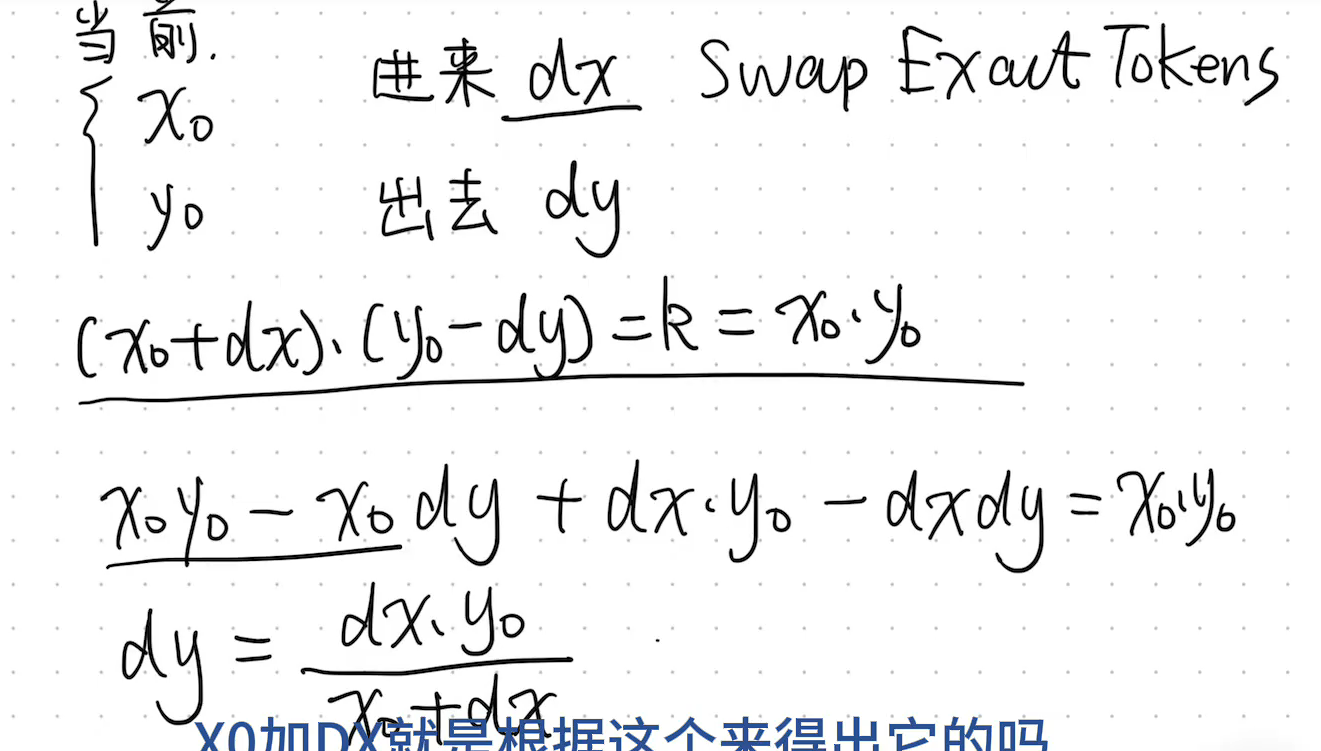 当前.
x₀
y₀
进来 dx Swap Exact Tokens
出去 dy
(x₀+dx)·(y₀-dy)=k=x₀·y₀
x₀y₀-x₀dy+dx·y₀-dxdy=x₀·y₀
dy=dx·y₀/(x₀+dx)
X0加DX就是根据这个来得出它的吗